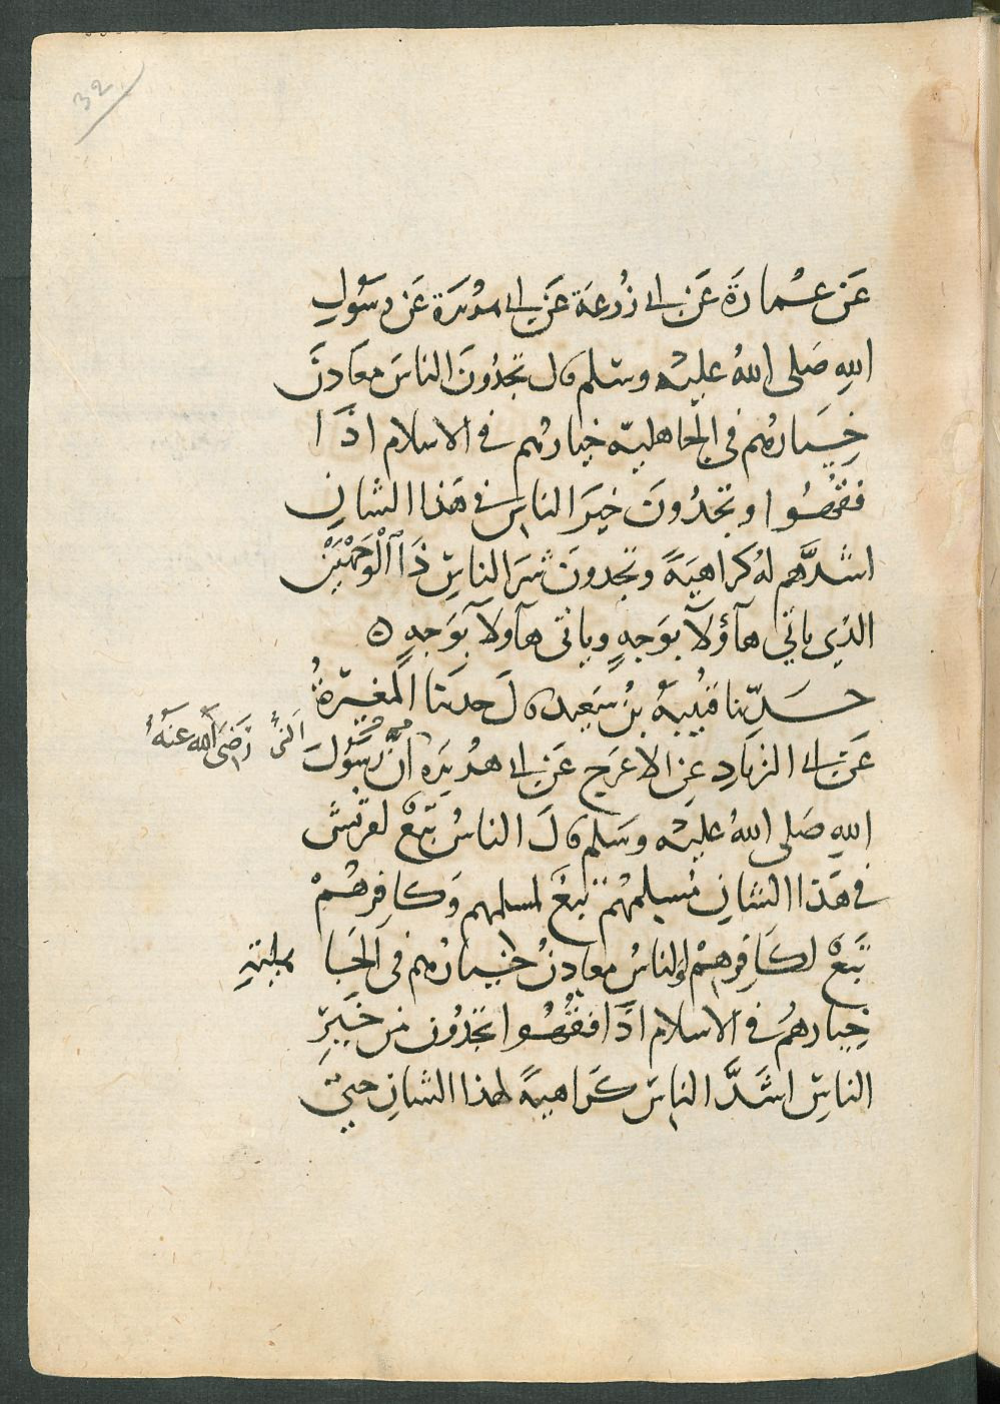 32
عَن عُمارَةَ عَن ابى زُرعَة عَن ابى هريرَة عَن رسَولِ
اللهِ صَلى اللهُ عليهْ وسَلم قال تجدُونَ الناسَ معَادنَ
خيَارهُم في الجاهليه خيارهُم في الاسلام اذَا
فقُهُوا وتجدُونَ خيرَ الناسِ في هَذا الشانِ
اشدَّهم لهُ كراهيَةً وتجدونَ شرَ الناسِ ذَا الْوَجْهَيْنِ
الذِى ياتي هآؤلآ بوَجهٍ وياتى هآولآ بوَجهٍ ه
حَدّثنا قتُيبهُ بنُ سَعِيد قالَ حدثنا المغيرةُ
عَن ابى الزنادِ عنِ الاعرَج عَن ابى هُريَره انَّ رسَولَ
النبىُ
رَضىَ الله عنهُ
اللهِ صَلى اللهُ عليهْ وسَلم قالَ الناسُ تبَعٌ لقريش
في هَذا الشانِ مُسلمهُم تبعٌ لمسلمهم وَكافِرهُمْ
تَبَعٌ لكَافِرهِمْ والناسُ معادنُ خيارهُم فى الجَاهليَةِ
خيارهُم في الاسلام اذَا فقُهُوا تجدُون مِن خَيرِ
الناسِ اشَدَّ الناسِ كَراهيةً لهذا الشانِ حتىّ